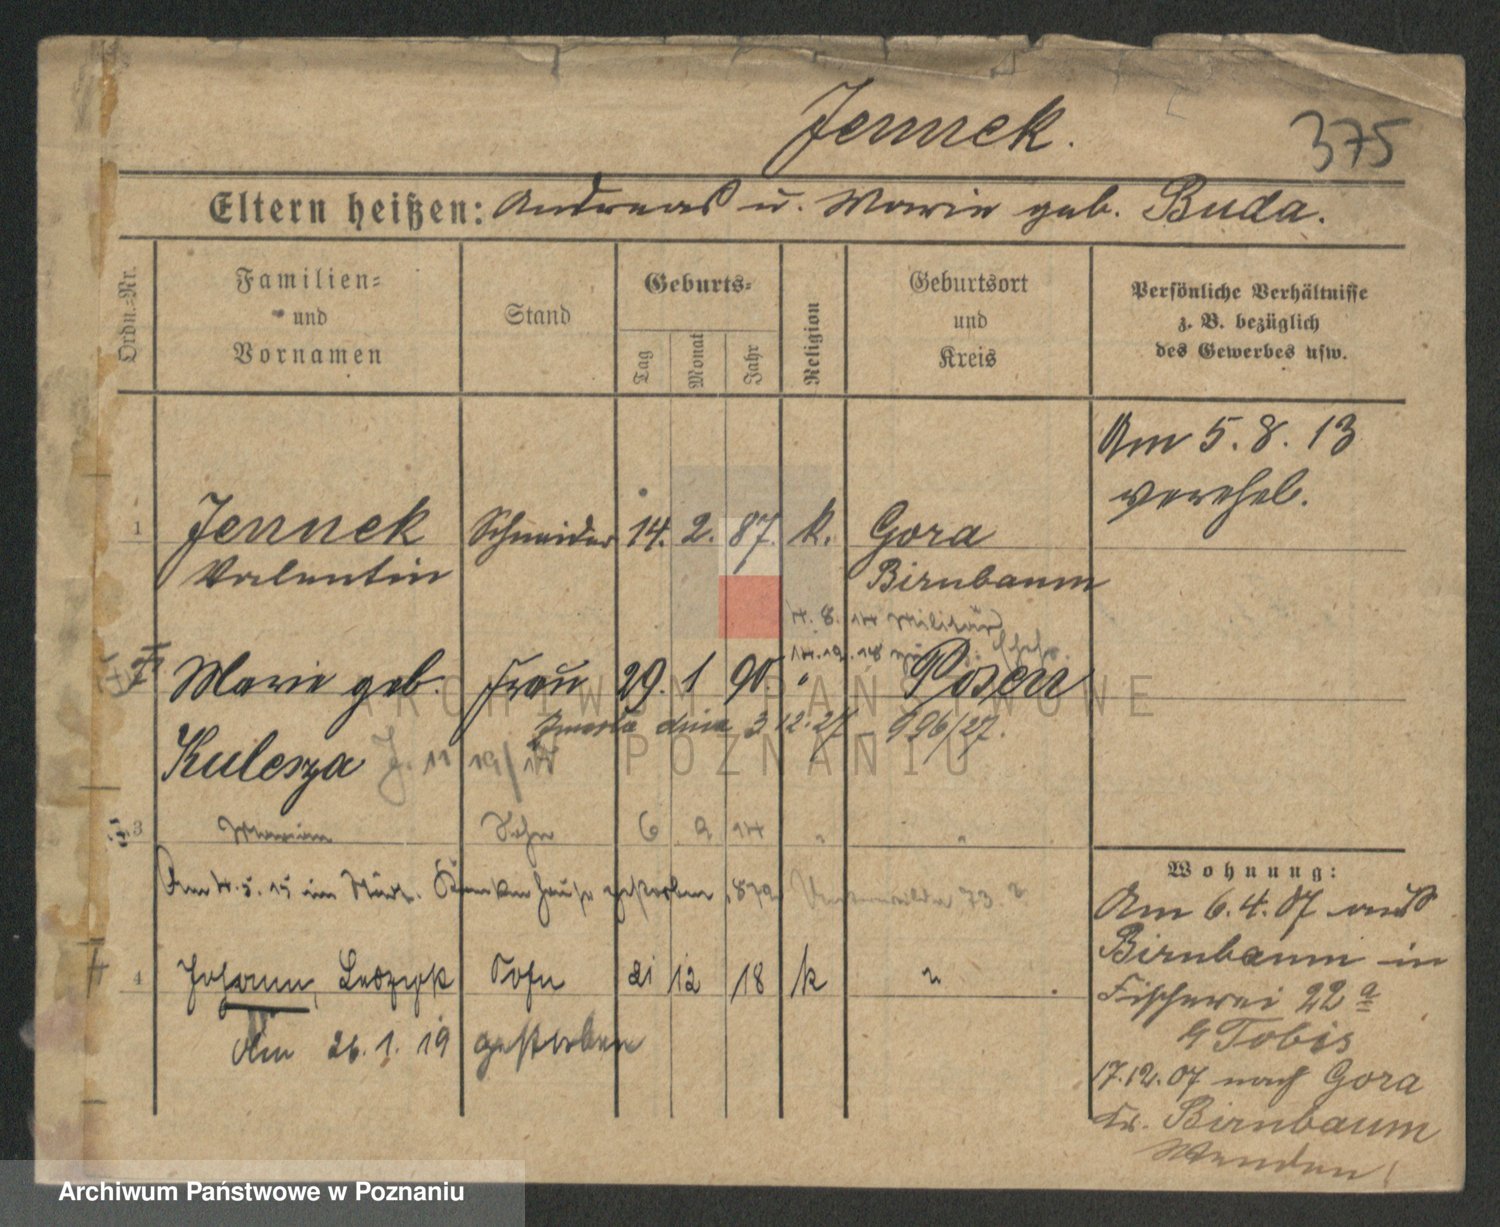 Jennek.
375
Eltern heißen: Andreas u. Marie geb. Buda.
Ordn.-Nr.
Familien-
und
Vornamen
Stand
Geburts-
Tag
Monat
Jahr
Religion
Geburtsort
und
Kreis
Persönliche Verhältnisse
z. B. bezüglich
des Gewerbes usw.
Am 5. 8. 13
verehel.
1 Jennek Schneider 14. 2. 87. k. Gora
Valentin Birnbaum
4. 8. 14 Militär
14. 12. 18
Marie geb. Frau 29. 1 90. " Posen
zmarła dnia 3 12. 27 996/27.
Kulesza J. 11 19/
3 Marian Sohn 6 2 14 " "
Am 4. 5. 15 im Städt. Krankenhause gestorben 73.
4 Johann, Leozyk Sohn 21 12 18 k "
Am 26. 1. 19 gestorben
Wohnung:
Am 6. 4. 07 aus
Birnbaum in
Fischerei 22 a
b Tobis
17. 12. 07 nach Gora
Kr. Birnbaum
ARCHIWUM PAŃSTWOWE
W POZNANIU
Archiwum Państwowe w Poznaniu